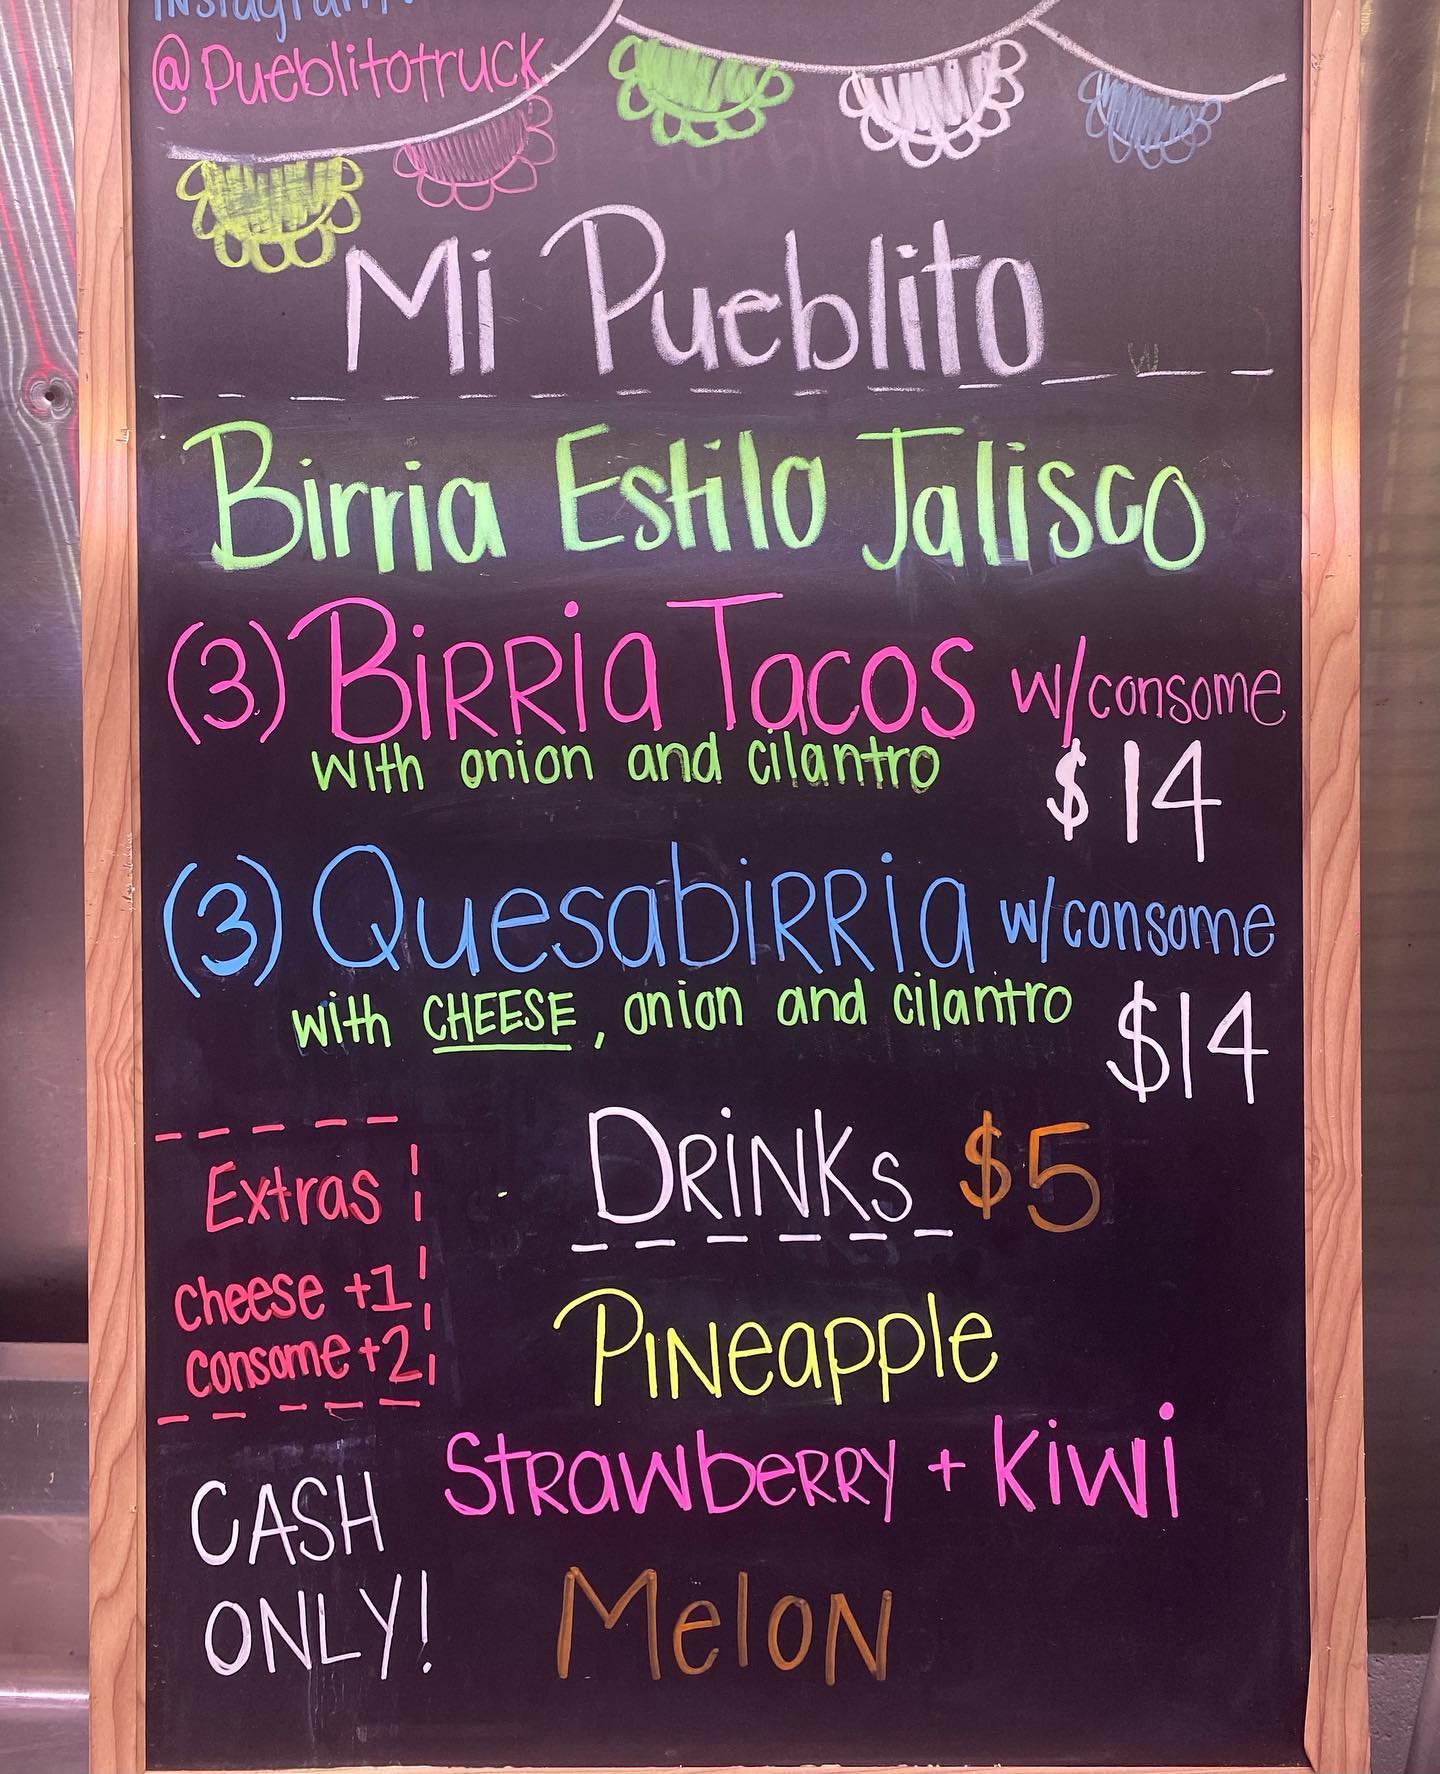 Instagram:
@Pueblitotruck
Mi Pueblito
Birria Estilo Jalisco
(3) Birria Tacos w/consome
with onion and cilantro $14
(3) Quesabirria w/consome
with CHEESE, onion and cilantro $14
Extras
cheese +1
consome +2
CASH
ONLY!
DRINKS $5
Pineapple
Strawberry + Kiwi
Melon